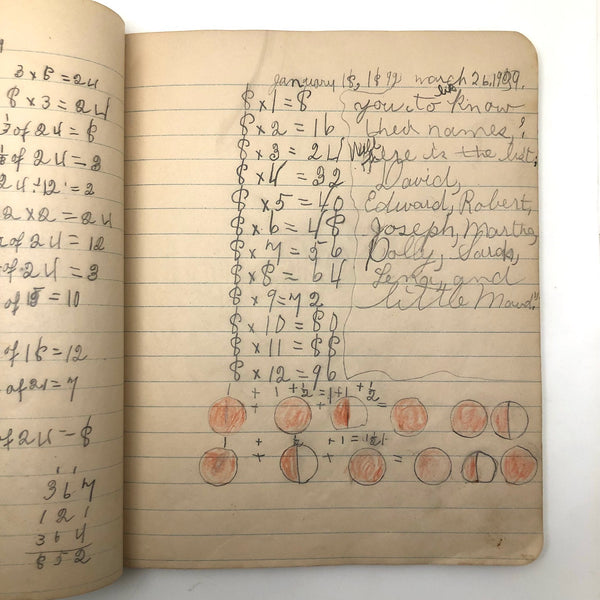 3 x 8 = 24
8 x 3 = 24
1/3 of 24 = 8
1/8 of 24 = 3
24 ÷ 12 = 2
2 x 2 = 24
of 24 = 12
of 24 = 3
of 15 = 10
of 18 = 12
of 21 = 7
of 24 = 8
1 1
367
121
364
852
January 18, 1892 March 26, 1909.
8 x 1 = 8
8 x 2 = 16
8 x 3 = 24
8 x 4 = 32
8 x 5 = 40
8 x 6 = 48
8 x 7 = 56
8 x 8 = 64
8 x 9 = 72
8 x 10 = 80
8 x 11 = 88
8 x 12 = 96
like
you to know
their names,
here is the list;
David,
Edward, Robert,
Joseph, Martha,
Dolly, Sarah,
and
little Maud."
1 + 1 + 1/2 = 1 + 1 + 1/2
+ + =
1 + 1/2 + 1 =
+ + =